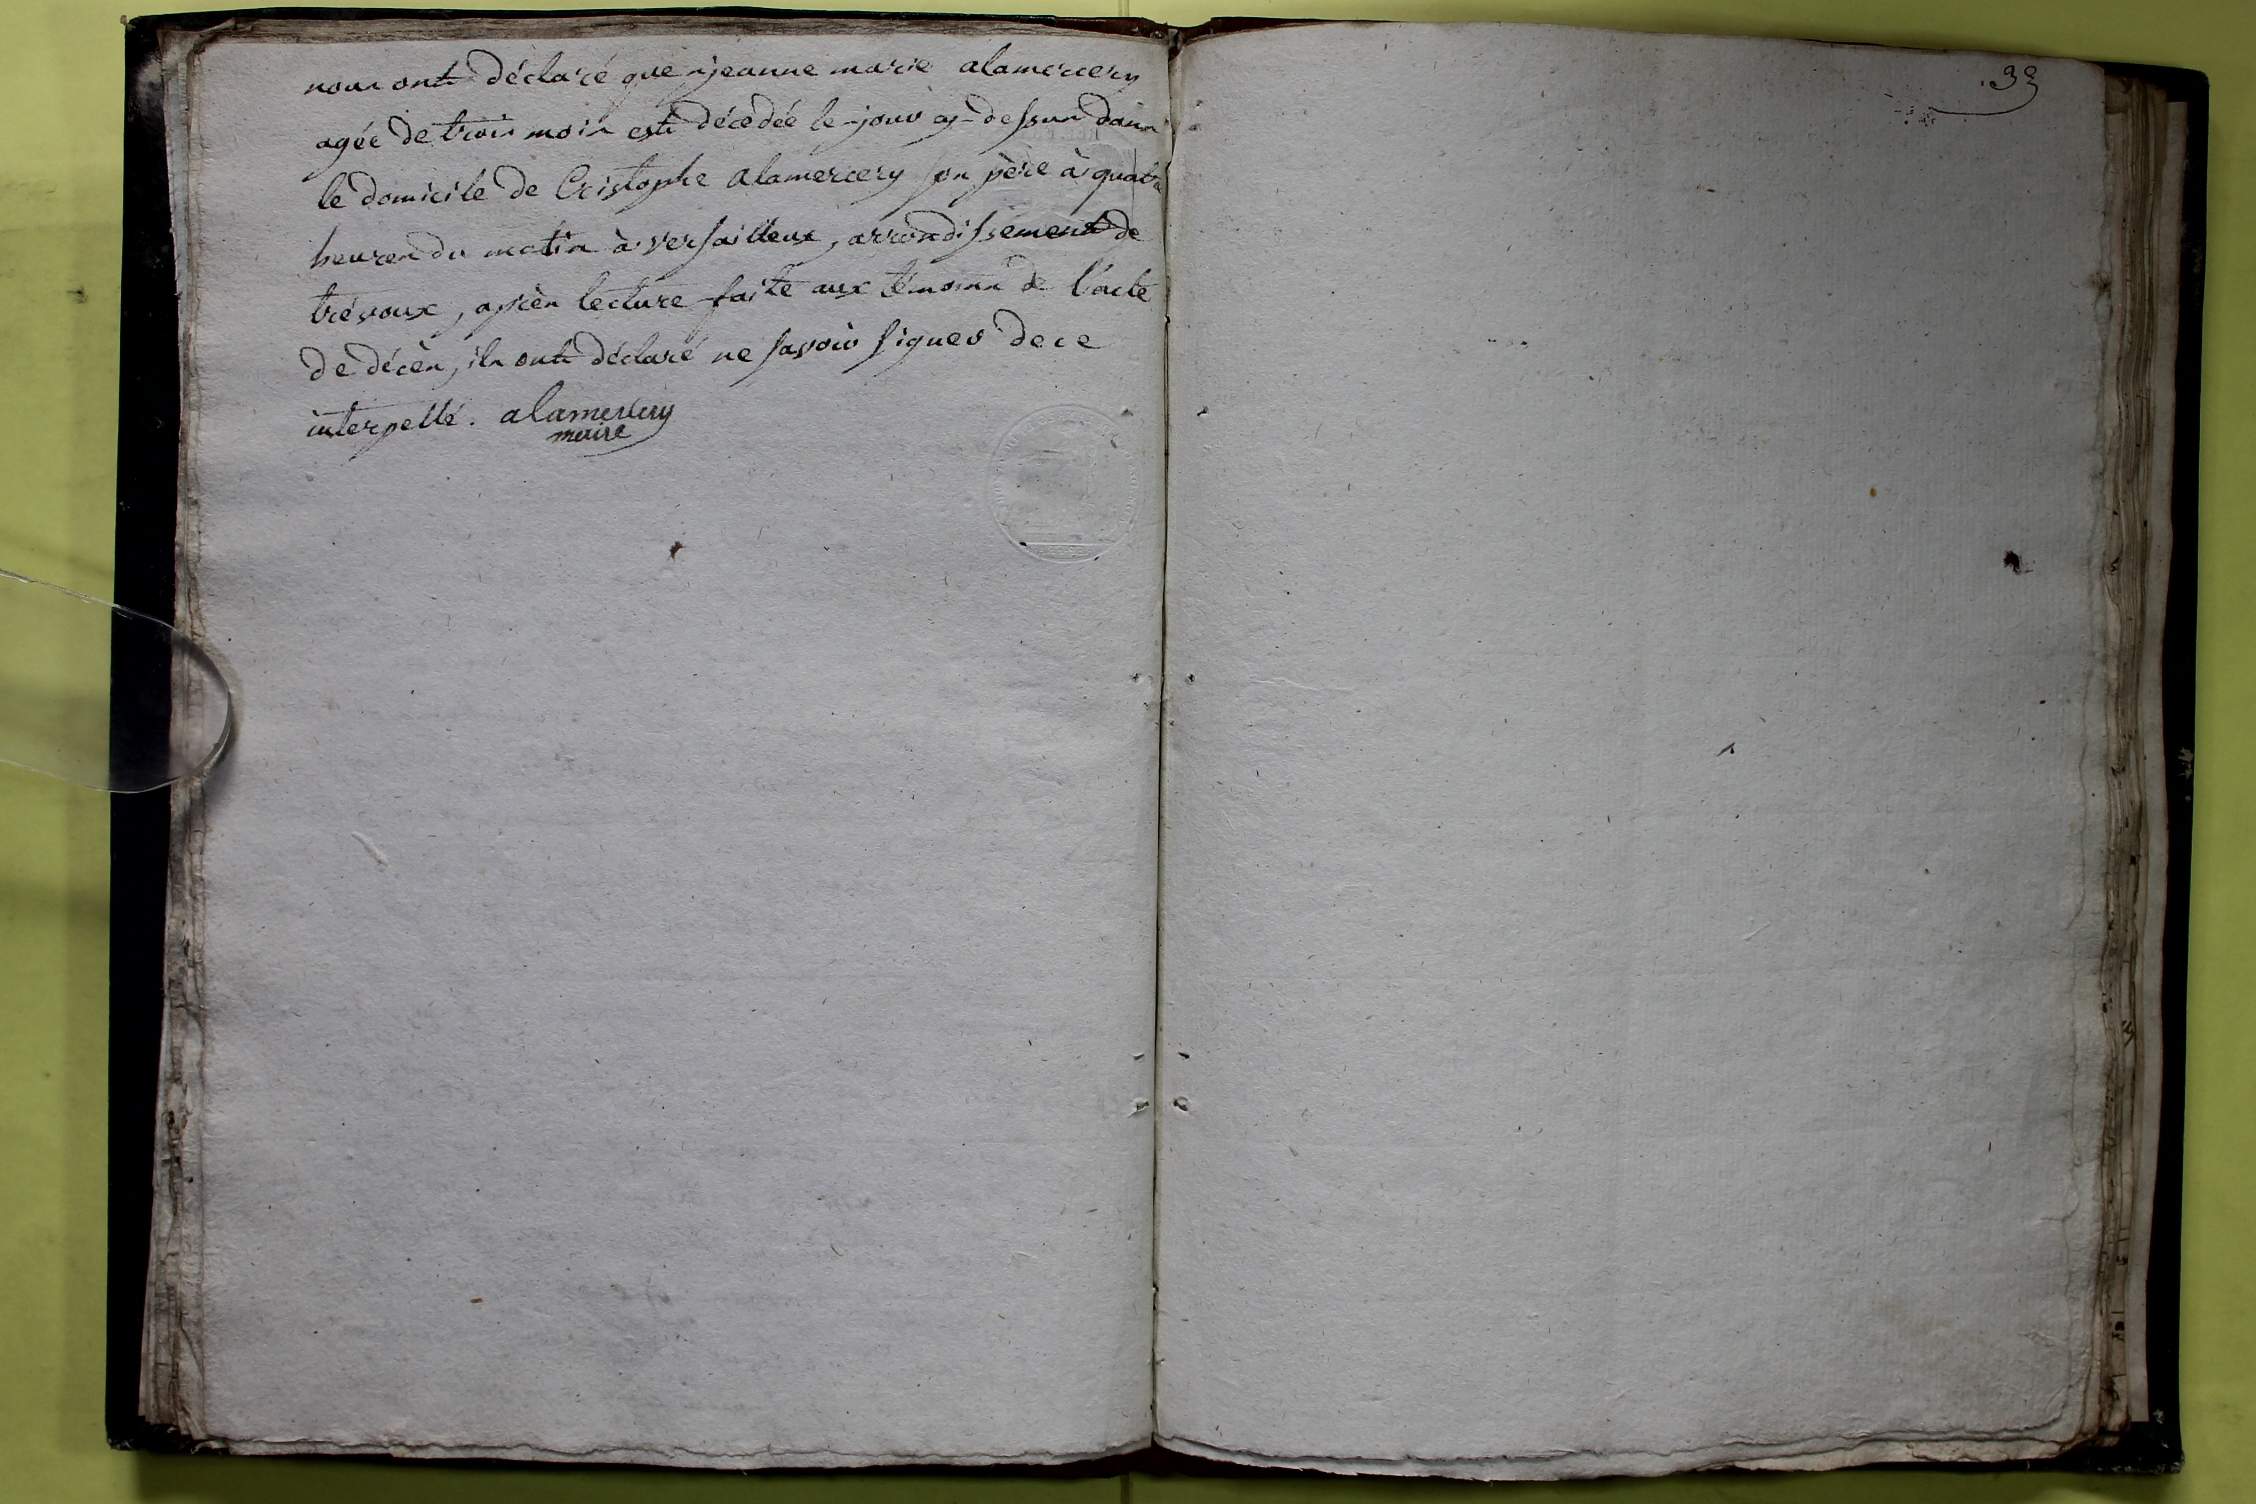 nous ont déclaré que jeanne marie alamercery
agée de trois mois est décedée le jour cy-dessus dans
le domicile de Cristophe alamercery son père à quatre
heures du matin à versailleux, arrondissement de
trévoux, après lecture faite aux témoins de l'acte
de décès, ils ont déclaré ne savoir signer de ce
interpellé. alamercery
maire
33